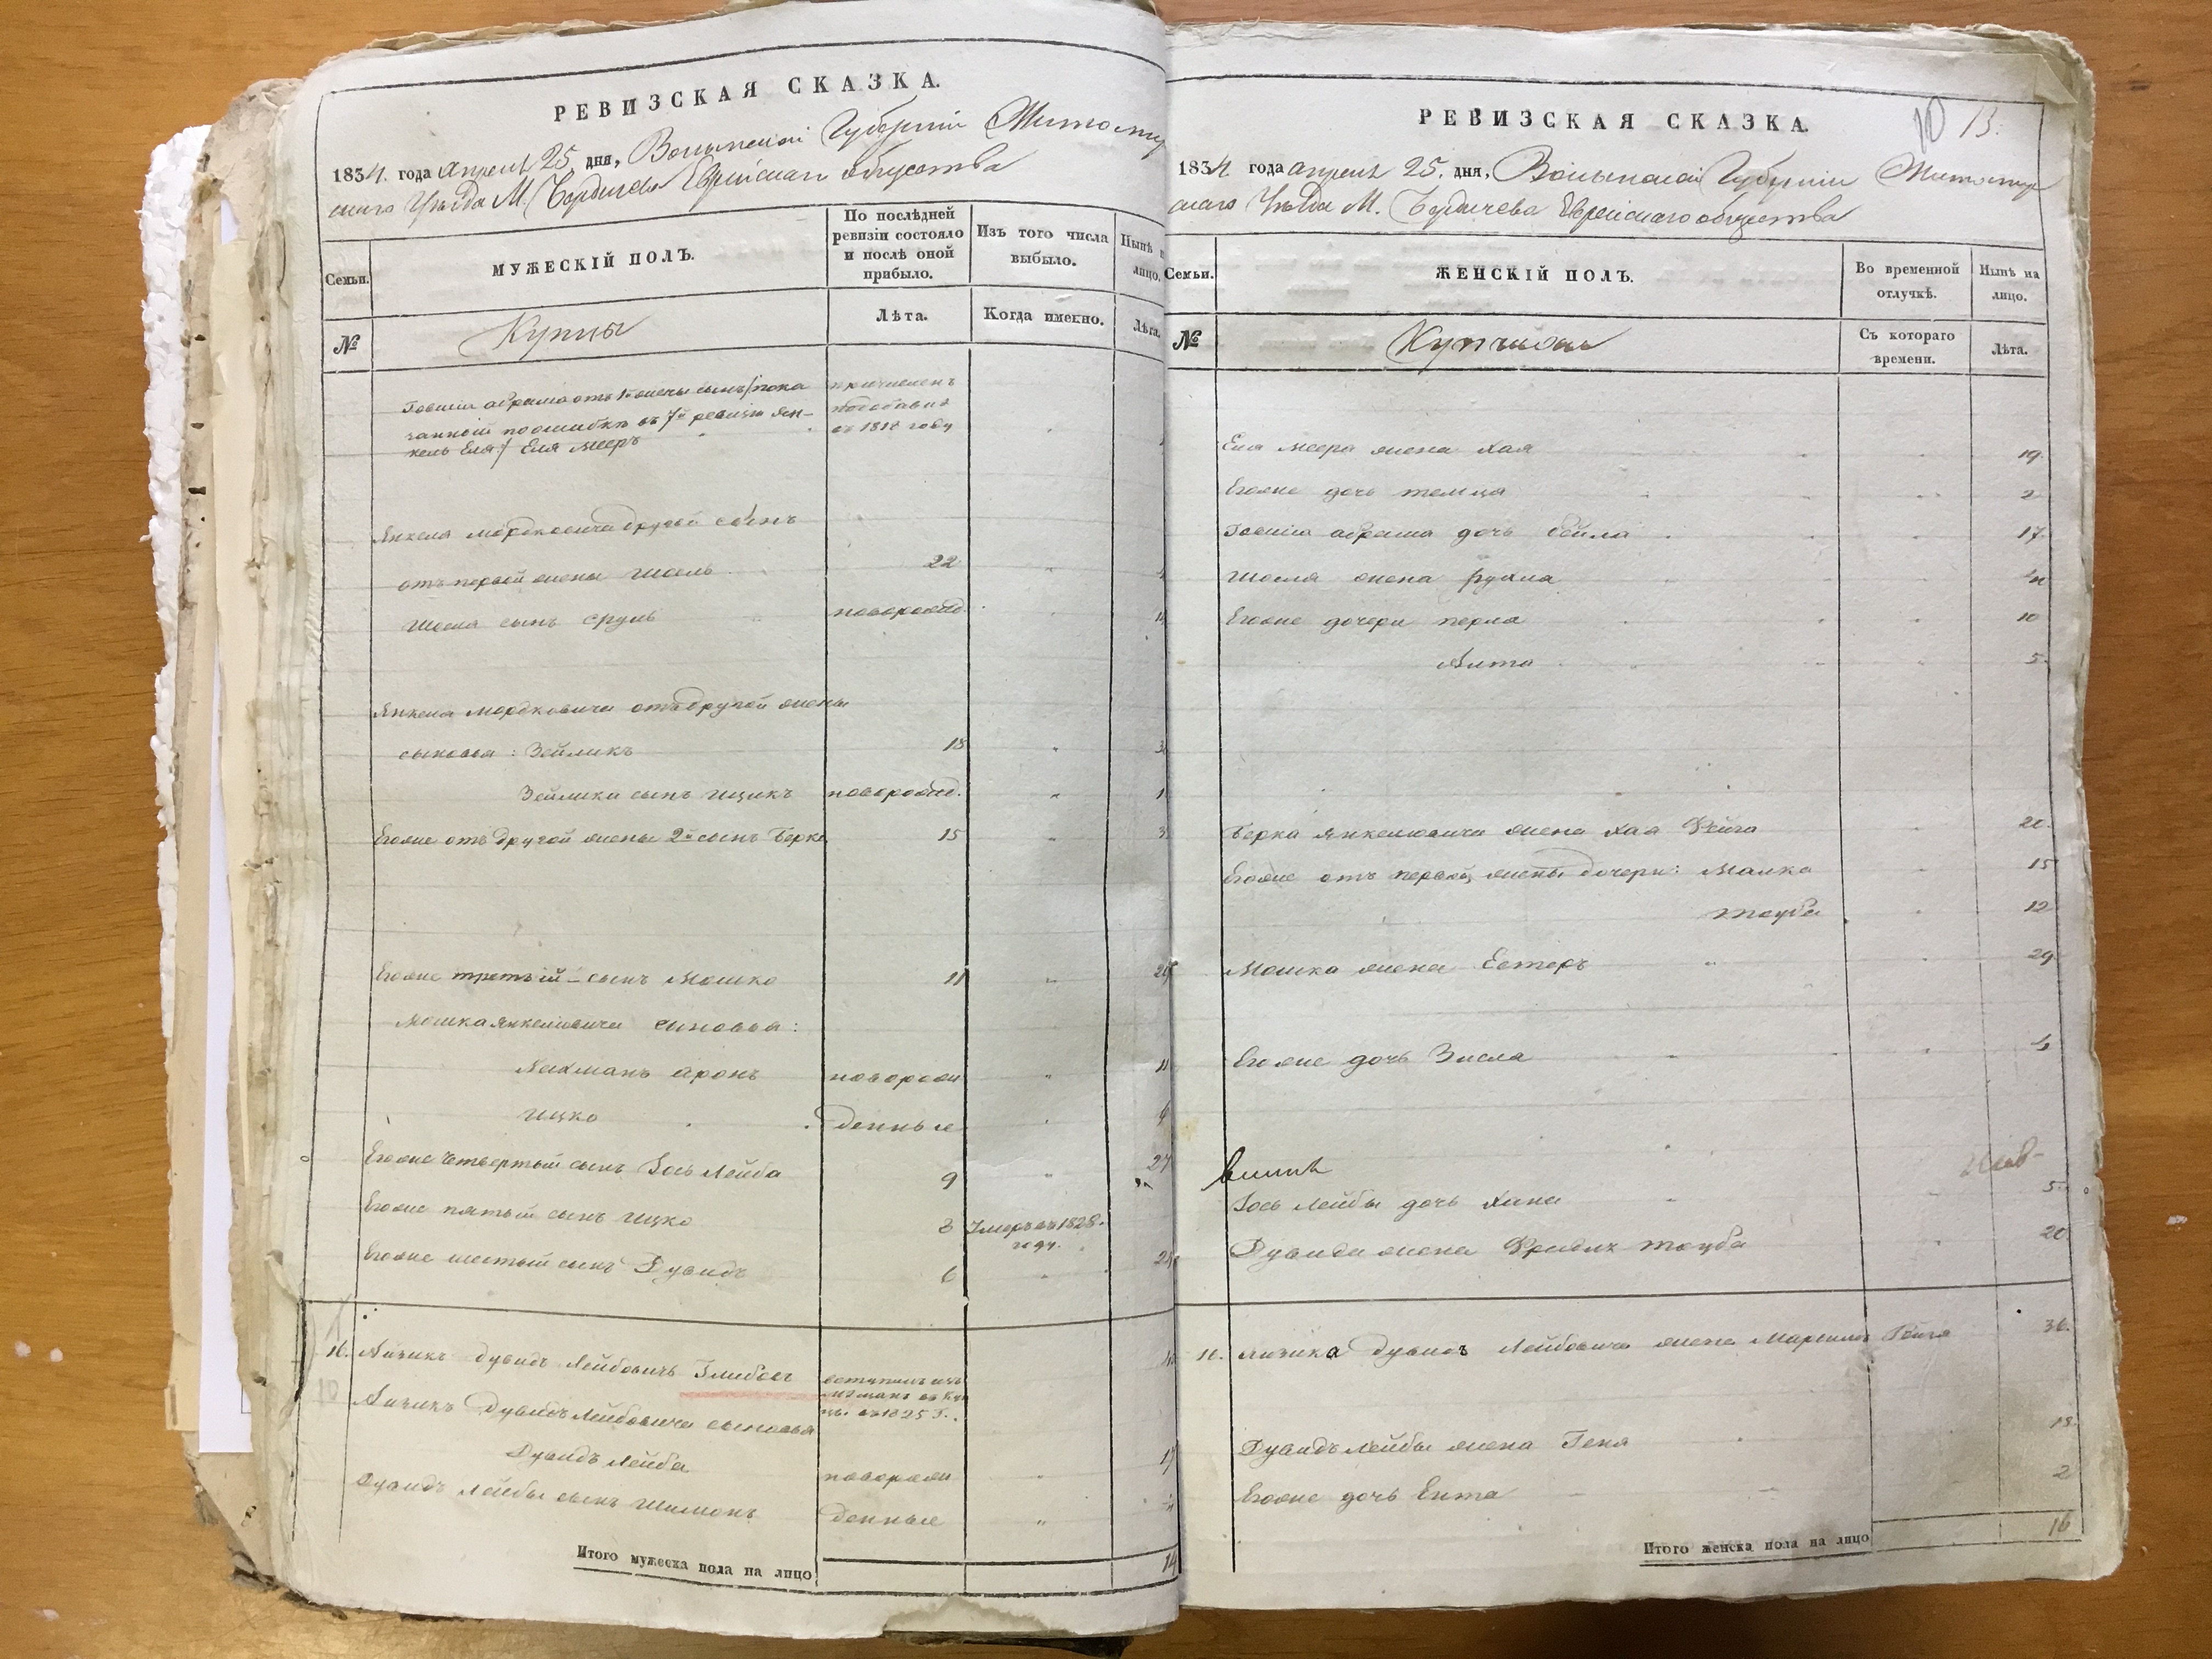 РЕВИЗСКАЯ СКАЗКА.
1834. года апреля 25 дня, Волынской Губерніи Житомир
скаго Уѣзда М. Бердичева Еврейскаго общества
Семьи.
МУЖЕСКІЙ ПОЛЪ.
По послѣдней
ревизіи состояло
и послѣ оной
прибыло.
Изъ того числа
выбыло.
Нынѣ
лицо.
№
Купцы
Лѣта.
Когда именно.
Лѣта.
абрама отъ 1й жены сынъ /пока
занной по ошибкѣ въ 7й ревизіи Ян-
кель Еля/ Еля Мееръ
причисленъ
въ 1818 году
Янкеля Мордковича другой сынъ
отъ первой жены Шмель
22
Шмеля сынъ Сруль
новорожд.
Янкеля Мордковича отъ другой жены
сыновья: Зейликъ
18
Зейлика сынъ Ицикъ
новорожд.
Егоже отъ другой жены 2й сынъ Берко
15
Егоже третьій сынъ Мошко
11
Мошка Янкелювича сыновья:
Нахманъ Аронъ
новорож
Ицко
денные
Егоже четвертый сынъ Іось Лейба
9
27
Егоже пятый сынъ Ицко
8
Умеръ въ 1828.
году.
Егоже шестый сынъ Дувидъ
6
16. Айзикъ Дувидъ Лейбовичъ
вступилъ изъ
мѣщанъ въ Куп
цы въ 1825 г.
Айзикъ Дувидъ Лейбовича сыновья
Дувидъ Лейба
новорож
17
Дувидъ Лейбы сынъ Шимонъ
денные
Итого мужеска пола на лицо
14
РЕВИЗСКАЯ СКАЗКА.
10 13.
1834 года апреля 25. дня, Волынской Губерніи Житомир
скаго Уѣзда М. Бердичева Еврейскаго общества
Семьи.
ЖЕНСКІЙ ПОЛЪ.
Во временной
отлучкѣ.
Нынѣ на
лицо.
№
Купчихи
Съ котораго
времени.
Лѣта.
Еля Меера жена Хая
19.
Егоже дочь Темца
2
абрама дочь Бейла
17.
Шмеля жена Рухла
Егоже дочери Перла
10
Алта
5.
Берка Янкелювича жена Хая Фейга
20.
Егоже отъ первой жены дочери: Малка
15
Тауба
12
Мошка жена Естеръ
29
Егоже дочь Зисла
4
Іось Лейбы дочь Хана
5
Дувида жена Фрадля Тауба
20
16. Айзика Дувидъ Лейбовича жена Марьямъ Фейга
36.
Дувидъ Лейбы жена Геня
18.
Егоже дочь Ента
2
Итого женска пола на лицо
16